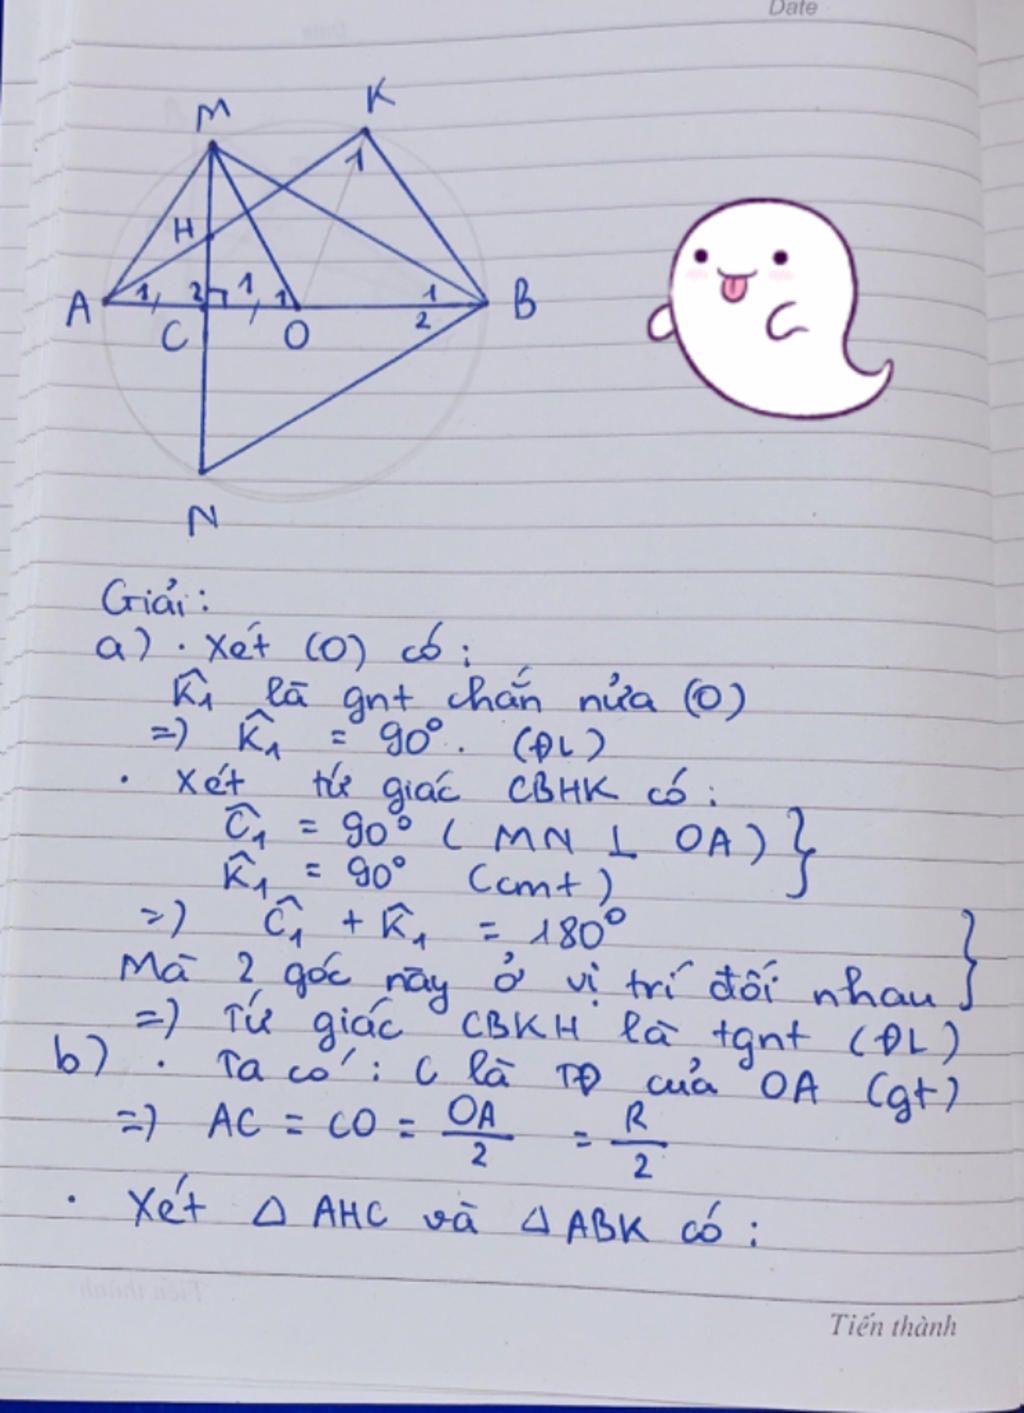 Date
M
K
1
H
A
1
2
1
1
1
B
C
O
2
N
Giải:
a) . Xét (O) có:
K̂₁ là gnt chắn nửa (O)
=> K̂₁ = 90°. (ĐL)
. Xét tứ giác CBHK có:
Ĉ₁ = 90° ( MN ⊥ OA ) }
K̂₁ = 90° (cmt)
=> Ĉ₁ + K̂₁ = 180°
Mà 2 góc này ở vị trí đối nhau }
=> Tứ giác CBKH là tgnt (ĐL)
b) . Ta có : C là TĐ của OA (gt)
=> AC = CO = OA/2 = R/2
. Xét Δ AHC và Δ ABK có :
Tiến thành